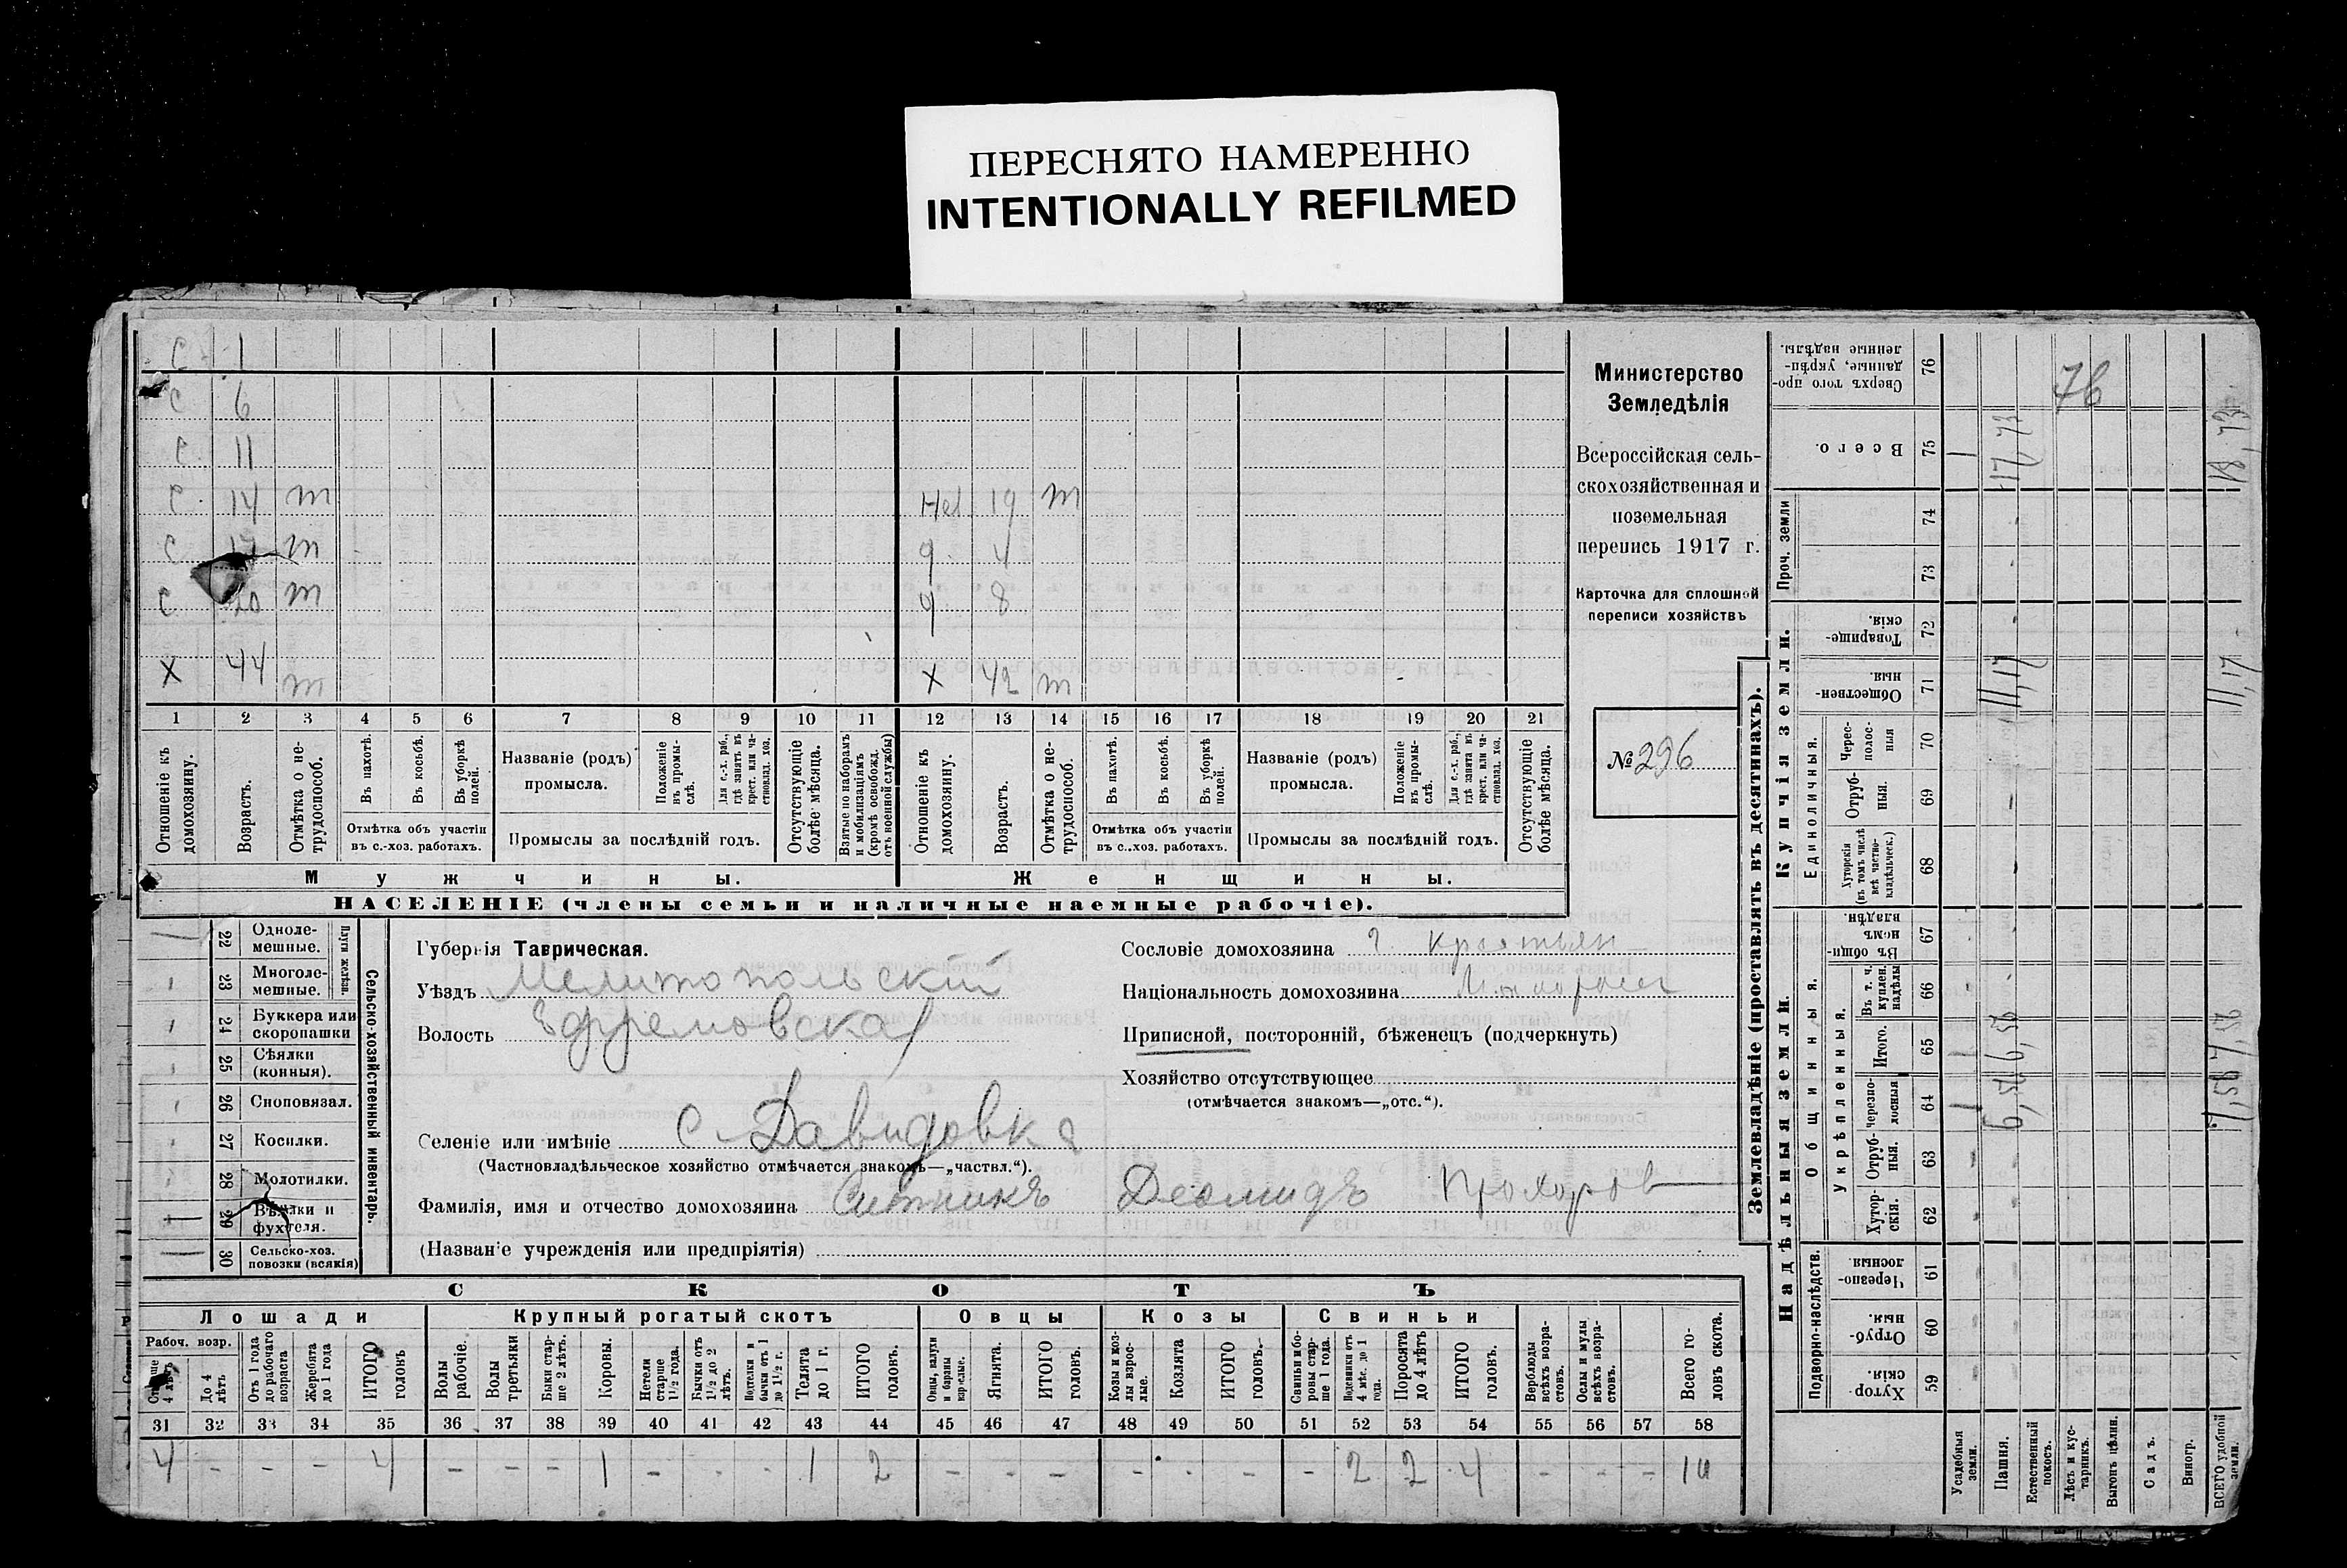 ПЕРЕСНЯТО НАМЕРЕННО
INTENTIONALLY REFILMED
С 1
С 6
С 11
С 14 m
С m
С 20 m
Х 44 m
19 m
9 4
9 8
Х 42 m
1 2 3 4 5 6 7 8 9 10 11 12 13 14 15 16 17 18 19 20 21
Отношеніе къ домохозяину.
Возрастъ.
Отмѣтка о нетрудоспособ.
Въ пахотѣ.
Въ косьбѣ.
Въ уборкѣ полей.
Отмѣтка объ участіи
въ с.-хоз. работахъ.
Названіе (родъ)
промысла.
Положеніе въ промыслѣ.
Для с.-х. раб., гдѣ занятъ въ крест. или частновлад. хоз.
Промыслы за послѣдній годъ.
Отсутствующіе болѣе мѣсяца.
Взятые по наборамъ и мобилизаціямъ (кромѣ освобожд. отъ военной службы)
Отношеніе къ домохозяину.
Возрастъ.
Отмѣтка о нетрудоспособ.
Въ пахотѣ.
Въ косьбѣ.
Въ уборкѣ полей.
Отмѣтка объ участіи
въ с..хоз. работахъ.
Названіе (родъ)
промысла.
Положеніе въ промыслѣ.
Для с.-х. раб., гдѣ занята въ крест. или частновлад. хоз.
Промыслы за послѣдній годъ.
Отсутствующіе болѣе мѣсяца.
Мужчины.
Женщины.
НАСЕЛЕНІЕ (члены семьи и наличные наемные рабочіе).
Министерство
Земледѣлія
Всероссійская сель-
скохозяйственная и
поземельная
перепись 1917 г.
Карточка для сплошной
переписи хозяйствъ
№ 296
22 Одноле-
мешные.
23 Многоле-
мешные.
Плуги желѣзн.
24 Буккера или
скоропашки
25 Сѣялки
(конныя).
26 Сноповязал.
27 Косилки.
28 Молотилки.
29 Вѣялки и
фухтеля.
30 Сельско-хоз.
повозки (всякія)
Сельско-хозяйственный инвентарь.
Губернія Таврическая.
Уѣздъ Мелитопольскій
Волость Ефремовская
Селеніе или имѣніе с. Давидовка
(Частновладѣльческое хозяйство отмѣчается знакомъ—„частвл.“).
Фамилія, имя и отчество домохозяина Ситникъ Деомидъ Прохоров
(Названіе учрежденія или предпріятія)
Сословіе домохозяина крестьян
Національность домохозяина Малоросс
Приписной, посторонній, бѣженецъ (подчеркнуть)
Хозяйство отсутствующее
(отмѣчается знакомъ—„отс.“).
СКОТЪ
Лошади
Крупный рогатый скотъ
Овцы
Козы
Свиньи
Рабоч. возр.
Старше 4 лѣтъ
До 4 лѣтъ
Отъ 1 года до рабочаго возраста
Жеребята до 1 года
ИТОГО головъ
Волы рабочіе.
Волы третьяки
Быки старше 2 лѣтъ.
Коровы.
Нетели старше 1½ года.
Бычки отъ 1½ до 2 лѣтъ.
бычки отъ 1 до 1½ г.
Телята до 1 г.
ИТОГО головъ.
Овцы, валухи и бараны взрослые.
Ягнята.
ИТОГО головъ.
Козы и козлы взрослые.
Козлята
ИТОГО головъ.
Свиньи и боровы старше 1 года.
Подсвинки отъ 4 мѣс. до 1 года.
Поросята до 4 лѣтъ
ИТОГО головъ.
Верблюды всѣхъ возрастовъ.
Ослы и мулы всѣхъ возрастовъ.
Всего головъ скота.
31 32 33 34 35 36 37 38 39 40 41 42 43 44 45 46 47 48 49 50 51 52 53 54 55 56 57 58
4 - - - 4 - - - 1 - - - 1 2 - - - - - - - 2 2 4 - - - 10
Землевладѣніе (проставлять въ десятинахъ).
Купчія земли.
Надѣльныя земли.
Сверхъ того проданные, укрѣпленные надѣлы. 76
Всего. 75
Проч. земли 74 73
Товарищескія. 72
Общественныя. 71
Единоличныя.
Чересполосныя 70
Отрубныя. 69
Хуторскія (въ томъ числѣ всѣ частновладѣльческ.) 68
Общинныя.
Въ общинномъ владѣн. 67
Укрѣпленныя.
Въ т. ч. куплен. надѣлы 66
Итого. 65
Черезполосныя 64
Отрубныя. 63
Хуторскія. 62
Подворно-наслѣдств.
Черезполосныя 61
Отрубныя. 60
Хуторскія 59
Усадебныя земли.
Пашня.
Естественный покосъ.
Лѣсъ и кустарникъ.
Выгонъ цѣлин.
Садъ.
Виногр.
ВСЕГО удобной земли.
76
17,73
18,73
11,17
11,17
6,56
6,56
7,56
7,56